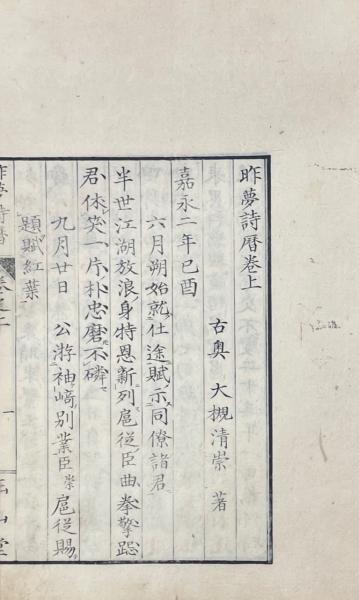 昨夢詩暦卷上
古奥 大槻清崇 著
嘉永二年己酉
六月朔始就仕途賦示同僚諸君
半世江湖放浪身特恩新列扈從臣曲拳擎跽
君休笑一片朴忠磨不磷
九月廿日 公游袖﨑別業臣崇扈從賜
題賦紅葉
昨夢詩暦 卷之 一 玉山堂